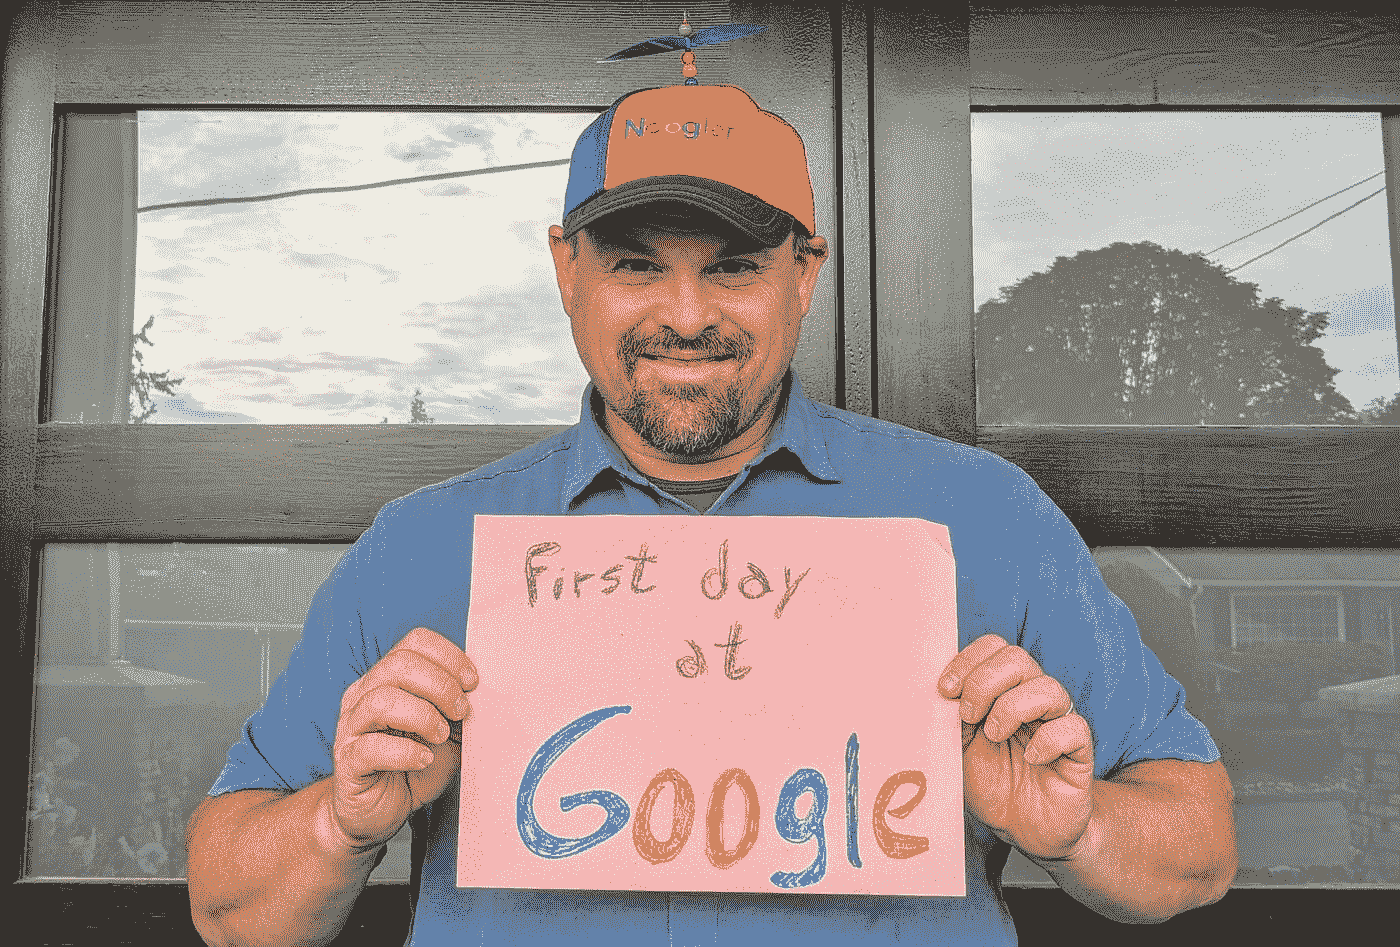 Noogler
First day
at
Google